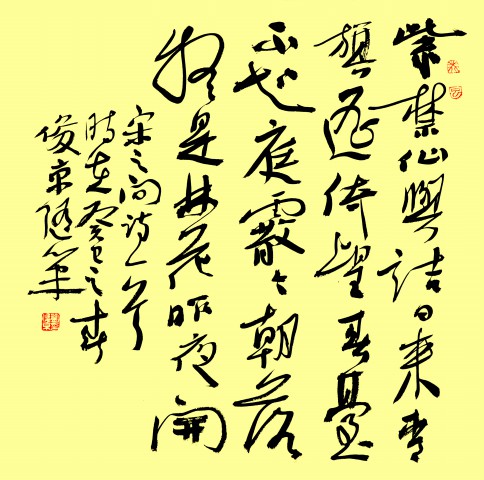 紫禁仙輿詰旦来青
旗遥倚望春臺
不知庭霰今朝落
疑是林花昨夜開
宋之问诗一首
時在癸巳之春
俊京随筆